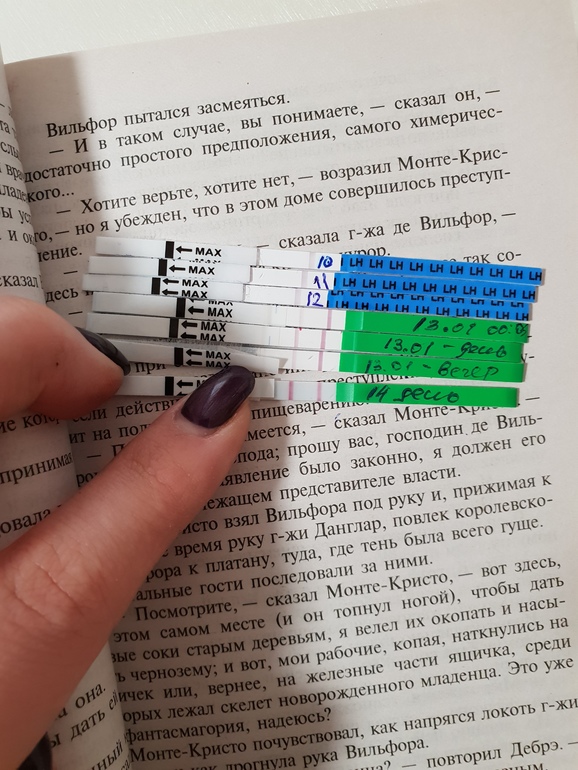 Вильфор пытался засмеяться.
— И в таком случае, вы понимаете, — сказал он, —
достаточно простого предположения, самого химеричес-
кого...
— Хотите верьте, хотите нет, — возразил Монте-Крис-
то, — но я убежден, что в этом доме совершилось преступ-
ление.
— сказала г-жа де Вильфор, —
так со-
MAX 10 LH LH LH LH LH LH LH LH LH LH
MAX 11 LH LH LH LH LH LH LH LH LH LH
MAX 12 LH LH LH LH LH LH LH LH LH LH
MAX 13.01 00:
MAX 13.01 - день
MAX 13.01 - вечер
MAX 14 день
сказал Монте-Крис-
пода; прошу вас, господин де Виль-
явление было законно, я должен его
лежащем представителе власти.
исто взял Вильфора под руку и, прижимая к
время руку г-жи Данглар, повлек королевско-
рора к платану, туда, где тень была всего гуще.
альные гости последовали за ними.
Посмотрите, — сказал Монте-Кристо, — вот здесь,
этом самом месте (и он топнул ногой), чтобы дать
вые соки старым деревьям, я велел их окопать и насы-
чернозему; и вот, мои рабочие, копая, наткнулись на
ичек или, вернее, на железные части ящичка, среди
орых лежал скелет новорожденного младенца. Это уже
фантасмагория, надеюсь?
Монте-Кристо почувствовал, как напрягся локоть г-жи
как дрогнула рука Вильфора.
повторил Дебрэ. —